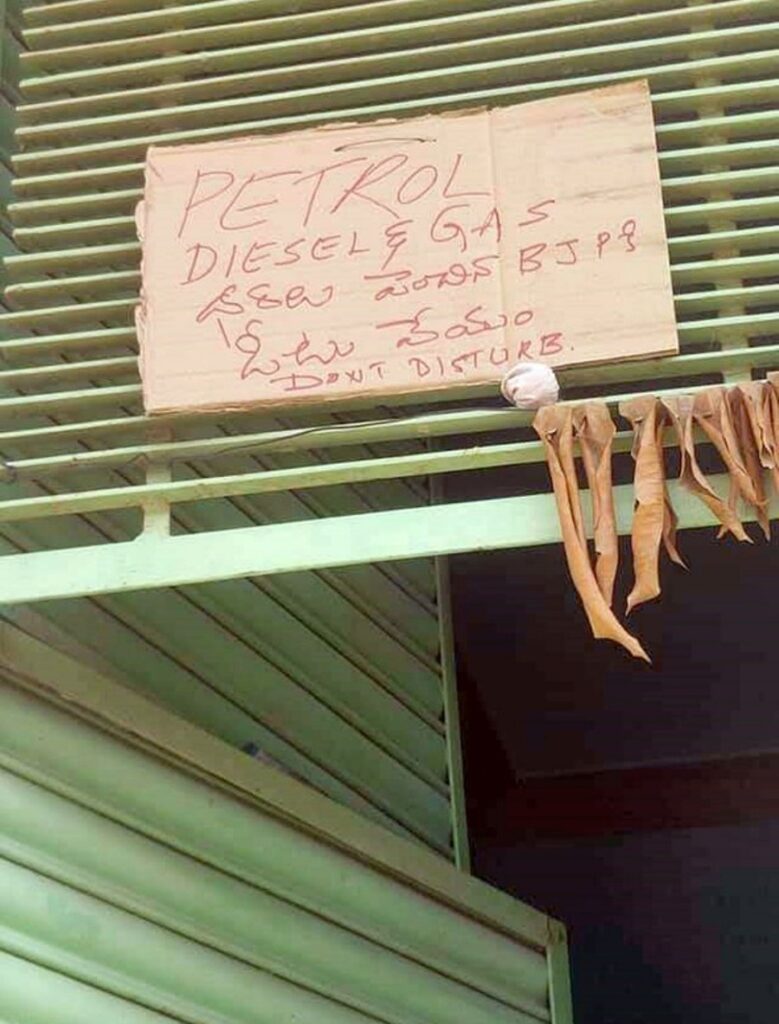 PETROL
DIESEL & GAS
ధరలు పెంచిన BJP కి
ఓటు వేయం
DONT DISTURB.